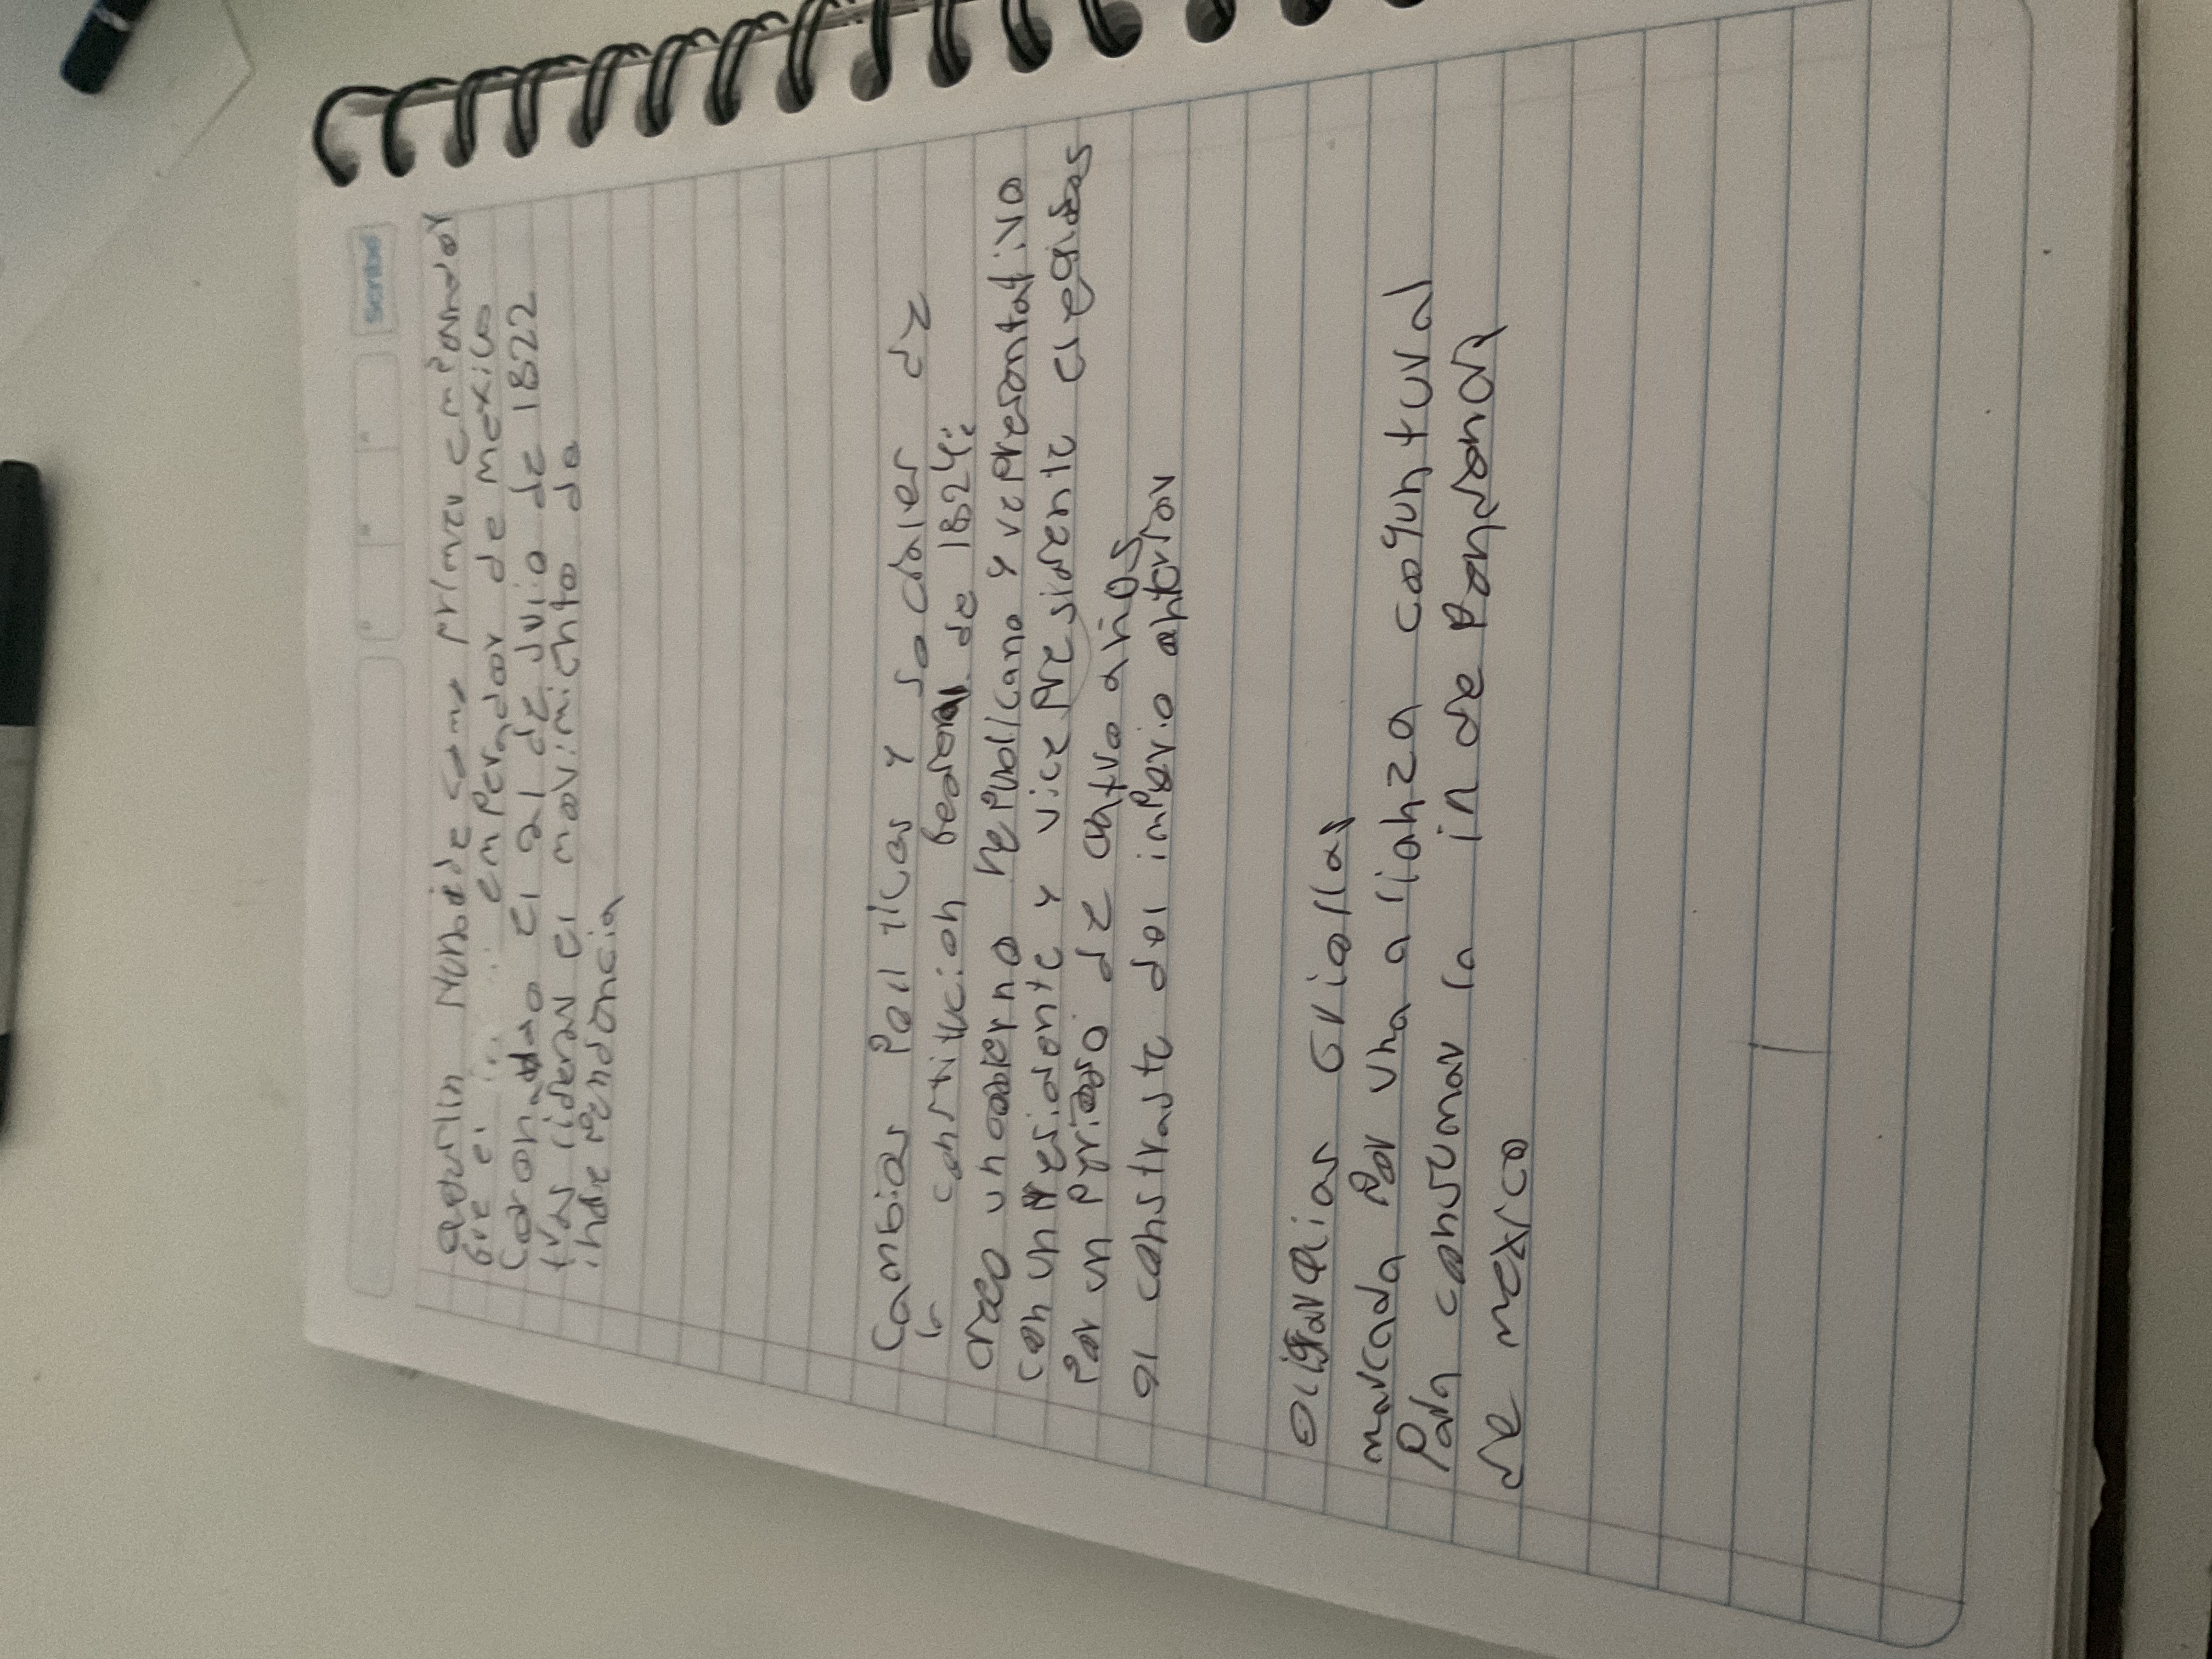 scribe
agustin iturbide como primer emperador
fue el emperador de mexico
coronado el 21 de julio de 1822
tras liderar el movimiento de
independencia
Cambios politicos y sociales de
la constitucion federal de 1824:
creo un gobierno republicano y representativo
con un presidente y vice presidente elegidos
por un periodo de cuatro años
al constraste del imperio anterior
oligarquias criollas
marcada por una alianza coyuntural
para consumar la independencia
de mexico